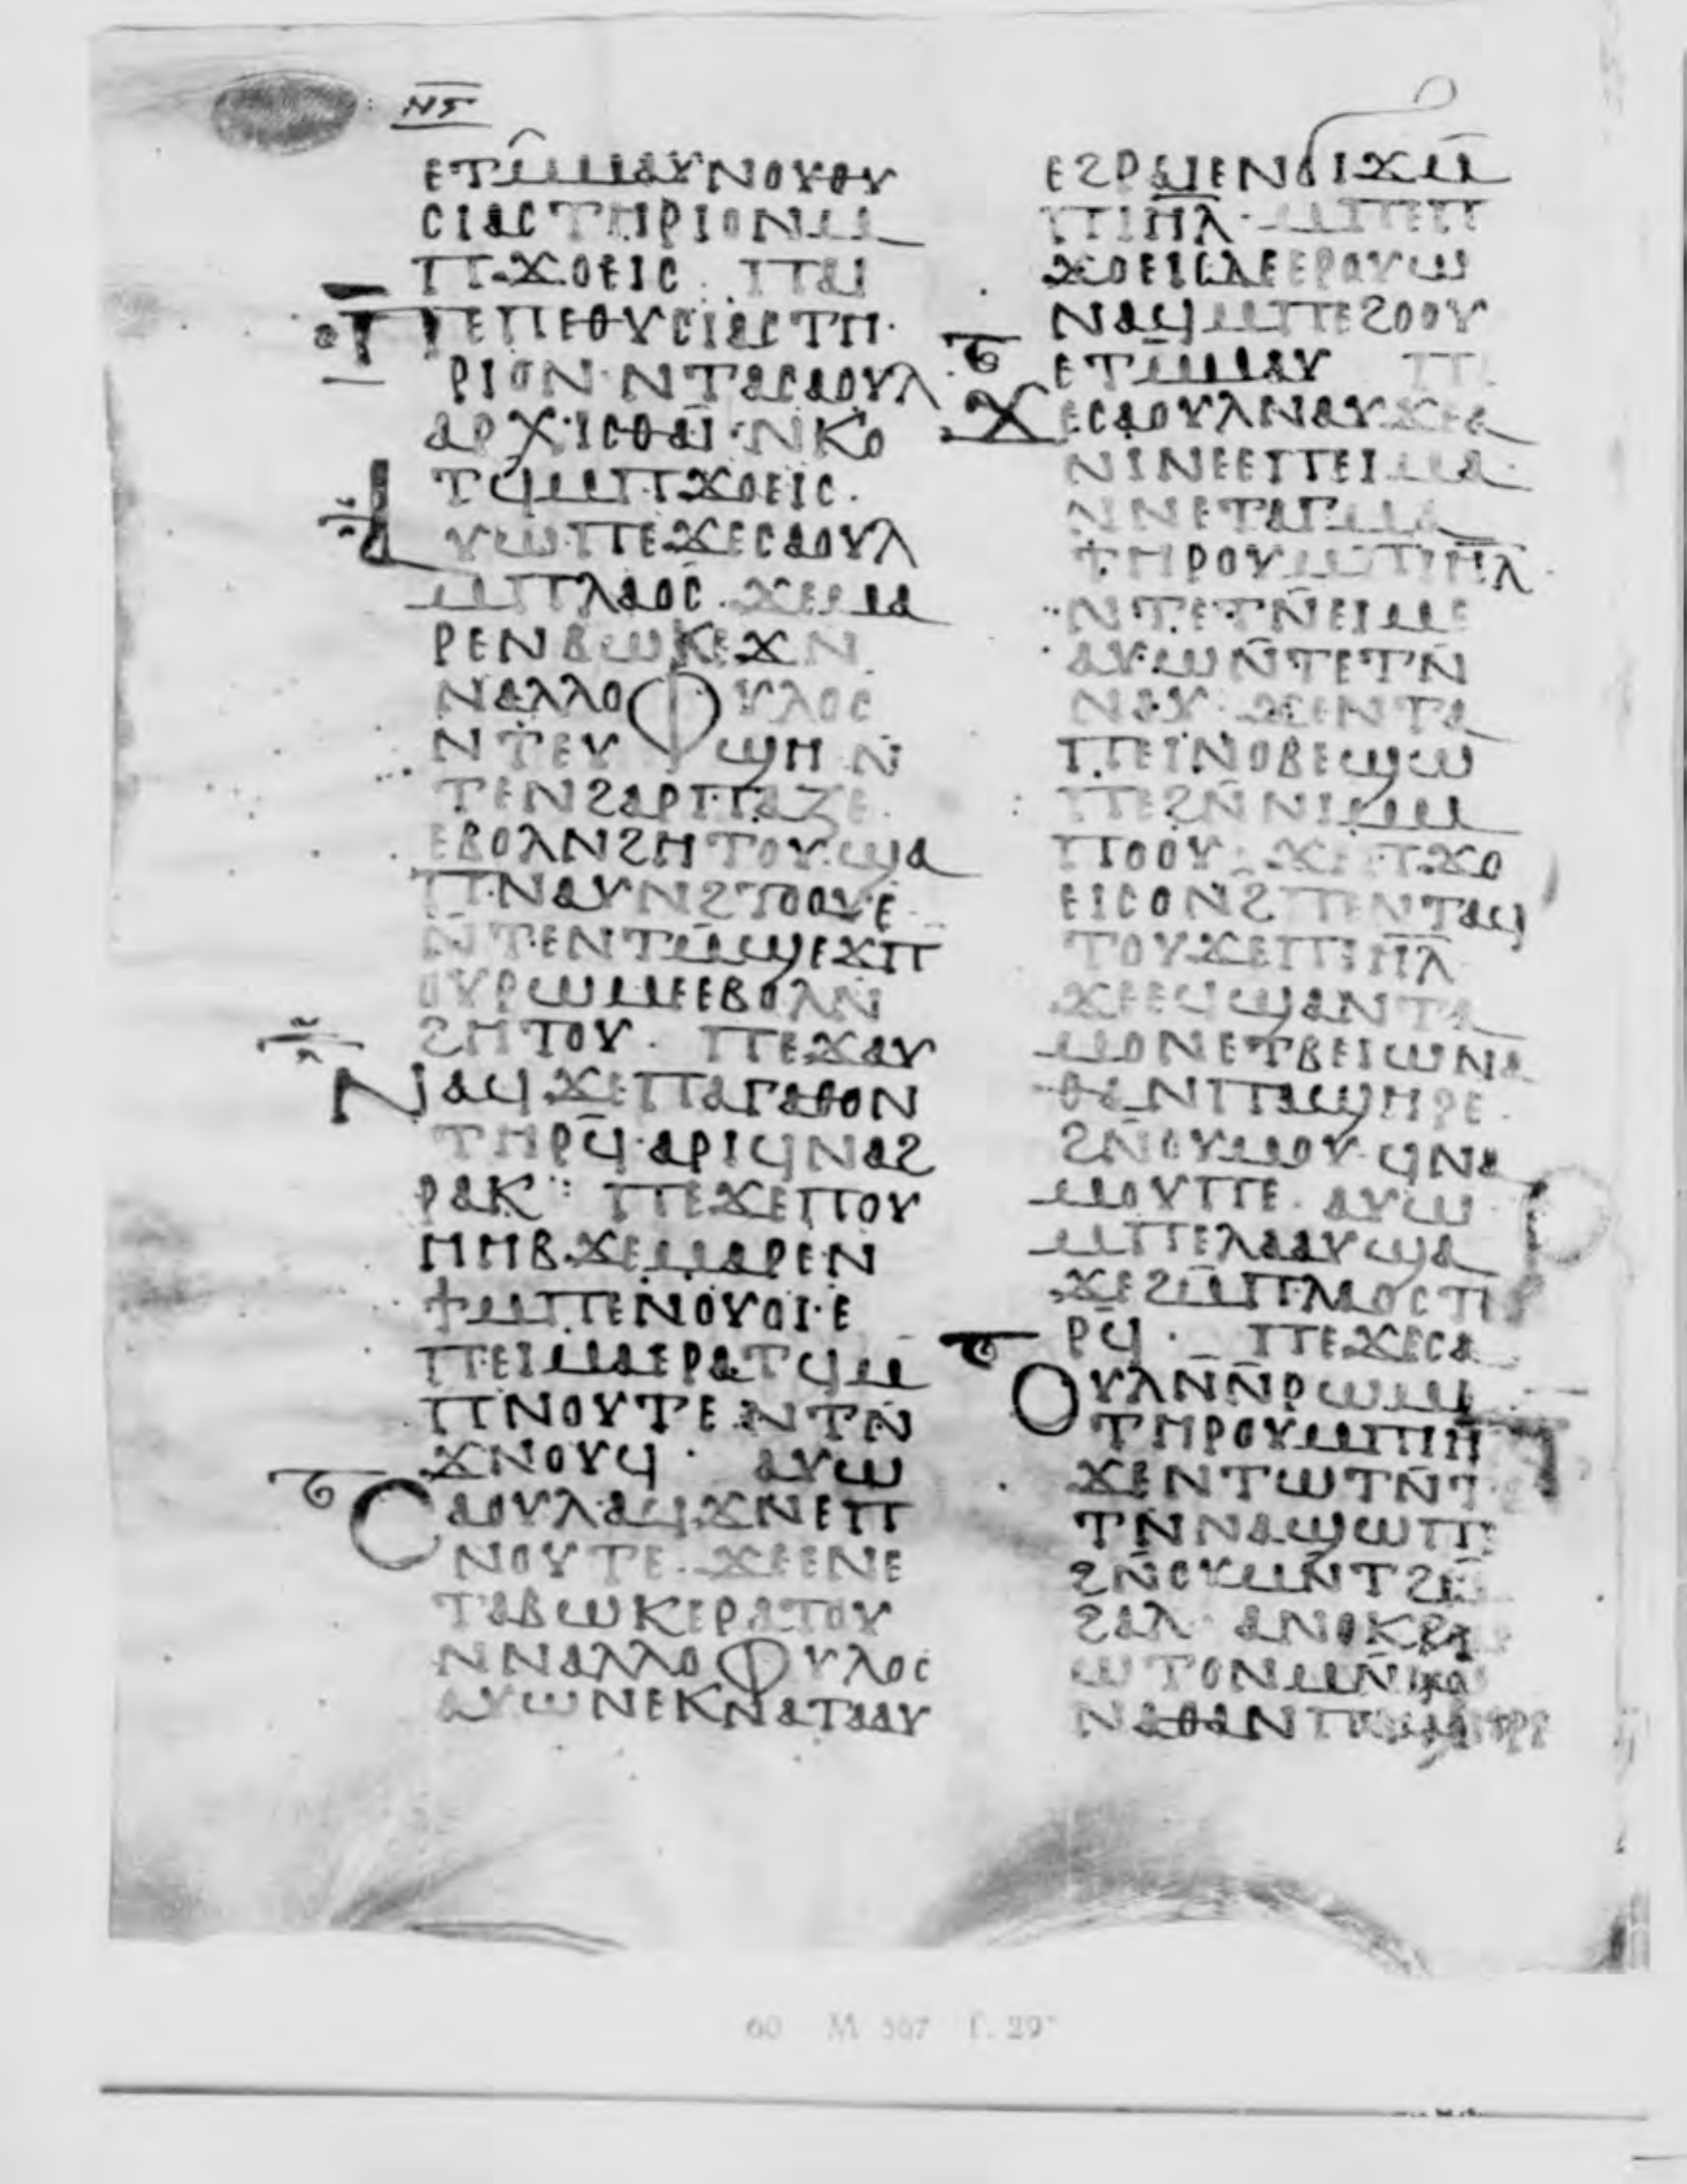 ⲛⲋ
ⲉⲧⲙ̂ⲙⲁⲩⲛⲟⲩⲑⲩ
ⲥⲓⲁⲥⲧⲏⲣⲓⲟⲛⲙ
ⲡϫⲟⲉⲓⲥ. ⲡⲁⲓ
ⲡⲉⲡⲉⲑⲩⲥⲓⲁⲥⲧⲏ
ⲣⲓⲟⲛ·ⲛⲧⲁⲥⲁⲟⲩⲗ
ⲁⲣⲭⲓⲥⲑⲁⲓ·ⲛⲕⲟ
ⲧϥⲙⲡϫⲟⲉⲓⲥ.
ⲁⲩⲱⲡⲉϫⲉⲥⲁⲟⲩⲗ
ⲙⲡⲗⲁⲟⲥ.ϫⲉⲙⲁ
ⲣⲉⲛⲃⲱⲕⲉϫⲛ
ⲛⲁⲗⲗⲟⲫⲩⲗⲟⲥ
ⲛⲧⲉⲩϣⲏ ⲛ̄
ⲧⲉⲛϩⲁⲣⲡⲁⲍⲉ.
ⲉⲃⲟⲗⲛϩⲏⲧⲟⲩ.ϣⲁ
ⲡⲛⲁⲩⲛϩⲧⲟⲟⲩⲉ
ⲛ̄ⲧⲉⲛⲧⲙ̄ϣⲉϫⲡ
ⲟⲩⲣⲱⲙⲉⲉⲃⲟⲗⲛ̄
ϩⲏⲧⲟⲩ. ⲡⲉϫⲁⲩ
ⲛⲁϥϫⲉⲡⲁⲅⲁⲑⲟⲛ
ⲧⲏⲣϥ̄·ⲁⲣⲓϥⲛⲁϩ
ⲣⲁⲕ: ⲡⲉϫⲉⲡⲟⲩ
ⲏⲏⲃ.ϫⲉⲙⲁⲣⲉⲛ
ϯⲙⲡⲉⲛⲟⲩⲟⲓ·ⲉ
ⲡⲉⲓⲙⲁⲉⲣⲁⲧϥⲙ
ⲡⲛⲟⲩⲧⲉ.ⲛⲧⲛ̄
ϫⲛⲟⲩϥ· ⲁⲩⲱ
ⲥⲁⲟⲩⲗⲁϥϫⲛⲉⲡ
ⲛⲟⲩⲧⲉ.ϫⲉⲉⲛⲉ
ⲧⲁⲃⲱⲕⲉⲣⲁⲧⲟⲩ
ⲛⲛⲁⲗⲗⲟⲫⲩⲗⲟⲥ
ⲁⲩⲱⲛⲉⲕⲛⲁⲧⲁⲁⲩ
ⲉϩⲣⲁⲓⲉⲛϭⲓϫⲙ
ⲡⲓⲏ̄ⲗ̄·ⲙⲡⲉⲡ
ϫⲟⲉⲓⲥⲇⲉⲉⲣⲟⲩⲱ
ⲛⲁϥⲙⲡⲉϩⲟⲟⲩ
ⲉⲧⲙ̄ⲙⲁⲩ ⲡⲉ
ϫⲉⲥⲁⲟⲩⲗⲛⲁⲩϫⲉⲁ
ⲛⲓⲛⲉⲉⲡⲉⲓⲙⲁ
ⲛⲛⲉⲧⲁⲅⲙⲁ
ⲧⲏⲣⲟⲩⲙⲡⲓⲏ̄ⲗ̄
ⲛⲧⲉⲧⲛ̄ⲉⲓⲙⲉ
ⲁⲩⲱⲛ̄ⲧⲉⲧⲛ̄
ⲛⲁⲩ·ϫⲉⲛⲧⲁ
ⲡⲉⲓⲛⲟⲃⲉϣⲱ
ⲡⲉϩⲛ̄ⲛⲓⲙⲙ
ⲡⲟⲟⲩ:ϫⲉⲡϫⲟ
ⲉⲓⲥⲟⲛϩⲡⲉⲛⲧⲁϥ
ⲧⲟⲩϫⲉⲡⲓⲏ̄ⲗ̄
ϫⲉⲉϥϣⲁⲛⲧⲁ
ⲙⲟⲛⲉⲧⲃⲉⲓⲱⲛⲁ
ⲑⲁⲛⲡⲁϣⲏⲣⲉ.
ϩⲛ̄ⲟⲩⲙⲟⲩ·ϥⲛⲁ
ⲙⲟⲩⲡⲉ. ⲁⲩⲱ
ⲙⲡⲉⲗⲁⲁⲩϣⲁ
ϫⲉϩⲙ̄ⲡⲗⲁⲟⲥⲧⲏ
ⲣϥ̄. ⲡⲉϫⲉⲥⲁ
ⲟⲩⲗⲛⲛ̄ⲣⲱⲙ
ⲧⲏⲣⲟⲩⲙⲡⲓⲏ
ϫⲉⲛⲧⲱⲧⲛ̄ⲧⲉ
ⲧⲛ̄ⲛⲁϣⲱⲡⲉ
ϩⲛ̄ⲟⲩⲙⲛ̄ⲧϩⲙ̄
ϩⲁⲗ· ⲁⲛⲟⲕ
ⲱⲧⲟⲛⲙⲛ̄ⲓⲱ
ⲛⲁⲑⲁⲛⲡⲁϣⲏⲣⲉ
60 M 567 f. 29ᵛ